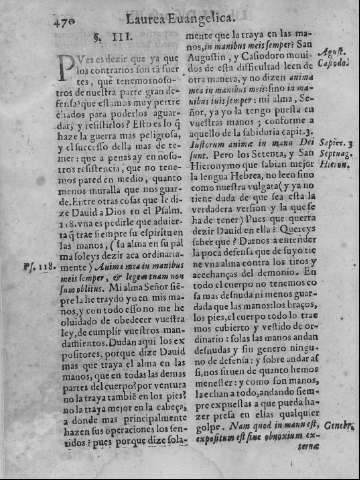 470
Laurea Euangelica.
§. III.
PVes es dezir que ya que
los contrarios son tã fuer
tes, que tenemos noso-
tros de nuestra parte gran de-
fensa? que estamos muy pertre
chados para poderlos aguar-
dar, y resistirlos? Esto es lo q̃
haze la guerra mas peligrosa,
y el successo della mas de te-
mer: que a penas ay en noso-
tros resistencia, que no tene-
mos pared en medio, quanto
menos muralla que nos guar-
de. Entre otras cosas que le di-
ze Dauid a Dios en el Psalm.
118. vna es pedirle que aduier-
ta q̃ trae siempre su espiritu en
las manos, (la alma en su pal
ma soleys dezir aca ordinaria-
mente) Anima mea in manibus
meis semper, & legem tuam non
sum oblitus. Mi alma Señor siẽ-
pre la he traydo yo en mis ma-
nos, y con todo esso no me he
oluidado de obedecer vuestra
ley, de cumplir vuestros man-
damientos. Dudan aqui los ex
positores, porque dize Dauid
mas que traya el alma en las
manos, que en todas las demas
partes del cuerpo? por ventura
no la traya tambiẽ en los pies?
no la traya mejor en la cabeça,
a donde mas principalmente
hazen sus operaciones los sen-
tidos? pues porque dize sola-
Ps. 118.
mente que la traya en las ma-
nos, in manibus meis semper? San
Augustin, y Casiodoro moui-
dos de esta dificultad leen de
otra manera, y no dizen anima
mea in manibus meis: sino in ma-
nibus tuis semper: mi alma, Se-
ñor, ya yo la tengo puesta en
vuestras manos; conforme a
aquello de la sabiduria capit. 3.
Iustorum animæ in manu Dei
sunt. Pero los Setenta, y San
Hieronymo que sabian mejor
la lengua Hebrea, no leen sino
como nuestra vulgata (y ya no
tiene duda de que sea esta la
verdadera version y la que se
ha de tener) Pues que querra
dezir Dauid en ella? Quereys
saber que? Darnos a entender
la poca defensa que de suyo tie
ne vna alma contra los tiros y
acechanças del demonio. En
todo el cuerpo no tenemos co
sa mas desnuda y que menos
guardada que las manos: los braços,
los pies, el cuerpo todo lo trae
mos cubierto y vestido de or-
dinario: solas las manos andan
desnudas y sin genero ningu-
no de defensa: y sobre andar as
si, nos siruen de quanto hemos
menester: y como son manos,
la echan a todo, andando siem-
pre expuestas a que pueda ha-
zer presa en ellas qualquier
golpe. Nam quod in manu est,
expositum est sine obnoxium ex-
ternæ
Agust.
Casiodo.
Sapiẽ. 3
Septuag.
Hieron.
Genebr.